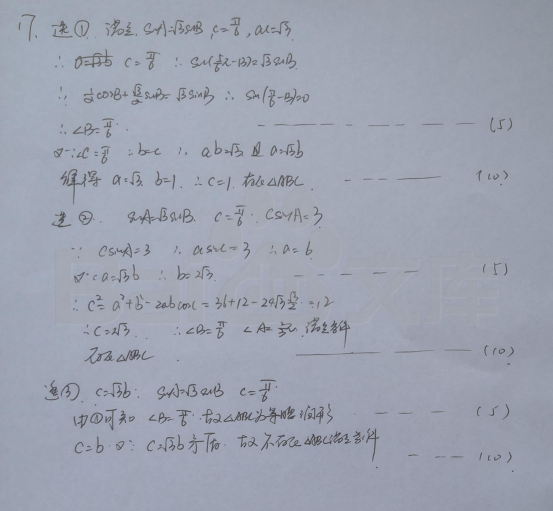 17. 选①. 满足 sinA=√3sinB, c=π/6, ac=√3
∴ a=√3b C=π/6 ∴ sin(5/6π-B)=√3sinB
∴ 1/2cosB+√3/2sinB=√3sinB ∴ sin(π/6-B)=0
∴∠B=π/6. (5)
又∵∠C=π/6 ∴b=c ∴ ab=√3 且 a=√3b
解得 a=√3, b=1, ∴c=1, 存在△ABC. (10)
选②. sinA=√3sinB. C=π/6. csinA=3
∵ csinA=3 ∴ asinC=3 ∴a=6
又∵a=√3b ∴ b=2√3 (5)
∴ c²=a²+b²-2abcosC=36+12-24√3·√3/2=12
∴C=2√3 ∴∠B=π/6 ∠A=2/3π. 满足条件
存在△ABC (10)
选③. c=√3b. sinA=√3sinB C=π/6
由①可知 ∠B=π/6. 故△ABC为等腰三角形 (5)
C=b 又∵ C=√3b 矛盾. 故不存在△ABC满足条件
(10)